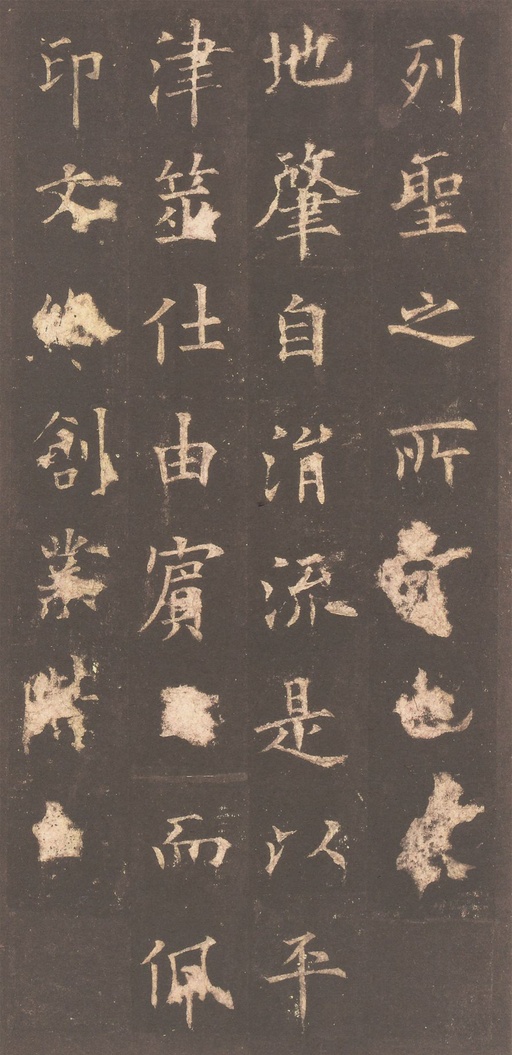 列聖之所也
地肇自涓流是以平
津筮仕由賓而佩
印文創業